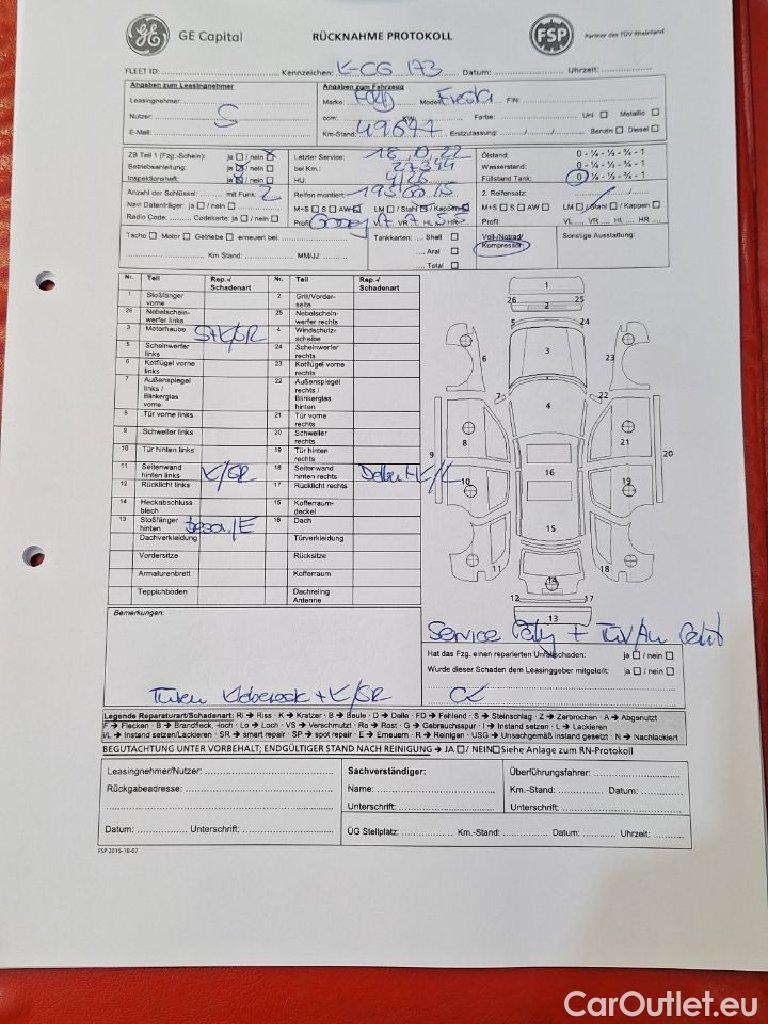 GE GE Capital RÜCKNAHME PROTOKOLL FSP Partner des TÜV Rheinland
FLEET ID: Kennzeichen: K-CG 173 Datum: Uhrzeit:
Angaben zum Leasingnehmer
Leasingnehmer:
Nutzer: S
E-Mail:
Angaben zum Fahrzeug
Marke: Ford Modell: Fiesta FIN:
ccm: KW: Farbe: Uni Metallic
Km-Stand: 49671 Erstzulassung: / / Benzin Diesel
ZB Teil 1 (Fzg.-Schein): ja / nein
Betriebsanleitung: ja / nein
Inspektionsheft: ja / nein
Letzter Service: 18.10.22
bei Km.: 27344
HU: 4/26
Ölstand: 0 - ¼ - ½ - ¾ - 1
Wasserstand: 0 - ¼ - ½ - ¾ - 1
Füllstand Tank: 0 ¼ - ½ - ¾ - 1
Anzahl der Schlüssel: mit Funk: 2
Navi Datenträger: ja / nein
Radio Code: Codekarte: ja / nein
Reifen montiert: 195 60 15
M+S S AW LM / Stahl / Kappen
Profil
2. Reifensatz:
M+S S AW LM / Stahl / Kappen
Profil: VL VR HL HR
Tacho Motor Getriebe erneuert bei:
Km Stand: MM/JJ:
Tankkarten: Shell
Aral
Total
Voll-/Notrad/
Kompressor
Sonstige Ausstattung:
Nr. Teil Rep.-/ Schadenart Nr. Teil Rep.-/ Schadenart
1 Stoßfänger vorne 2 Grill/Vorder- seite
26 Nebelschein- werfer links 25 Nebelschein- werfer rechts
3 Motorhaube St/K/SR 4 Windschutz- scheibe
5 Scheinwerfer links 24 Scheinwerfer rechts
6 Kotflügel vorne links 23 Kotflügel vorne rechts
7 Außenspiegel links / Blinkerglas vorne 22 Außenspiegel rechts / Blinkerglas hinten
8 Tür vorne links 21 Tür vorne rechts
9 Schweller links 20 Schweller rechts
10 Tür hinten links 19 Tür hinten rechts
11 Seitenwand hinten links K/SR 18 Seitenwand hinten rechts K/L
12 Rücklicht links 17 Rücklicht rechts
14 Heckabschluss blech 15 Kofferraum- deckel
13 Stoßfänger hinten /E 16 Dach
Dachverkleidung Türverkleidung
Vordersitze Rücksitze
Armaturenbrett Kofferraum
Teppichboden Dachreling Antenne
1
26 25
2
5 24
3
6 23
7 22
4
8 21
9 20
16
10 19
15
11 18
14
12 17
13
Bemerkungen:
Service fällig + TÜV/Au
Hat das Fzg. einen reparierten Unfallschaden: ja / nein
Wurde dieser Schaden dem Leasinggeber mitgeteilt: ja / nein
Türen + K/SR
Legende Reparaturart/Schadenart: Ri → Riss · K → Kratzer · B → Beule · D → Delle · FD → Fehlend · S → Steinschlag · Z → Zerbrochen · A → Abgenutzt
F → Flecken · B → Brandfleck, -loch · Lo → Loch · VS → Verschmutzt · Ro → Rost · G → Gebrauchsspur · I → Instand setzen · L → Lackieren
I/L → Instand setzen/Lackieren · SR → smart repair · SP → spot repair · E → Erneuern · R → Reinigen · USG → Unsachgemäß instand gesetzt · N → Nachlackiert
BEGUTACHTUNG UNTER VORBEHALT; ENDGÜLTIGER STAND NACH REINIGUNG → JA / NEIN Siehe Anlage zum RN-Protokoll
Leasingnehmer/Nutzer:
Rückgabeadresse:
Datum: Unterschrift:
Sachverständiger:
Name:
Unterschrift:
Überführungsfahrer:
Km.-Stand: Datum:
Unterschrift:
ÜG Stellplatz: Km.-Stand: Datum: Uhrzeit:
FSP 2015-10-02
CarOutlet.eu